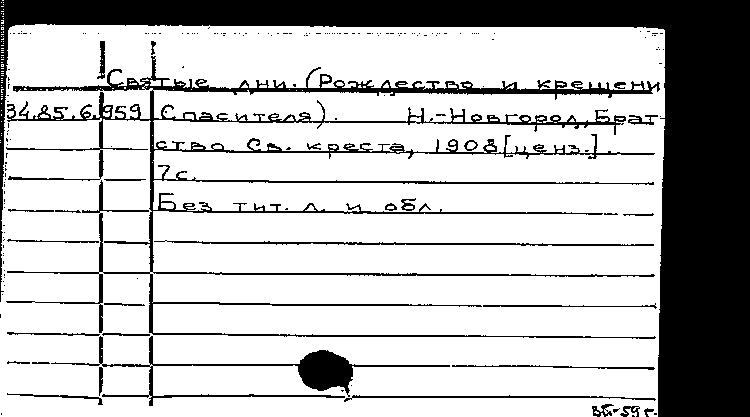 Святые дни. (Рождество и крещени
34.85.6.959 Спасителя). Н.-Новгород, Брат-
ство Св. креста, 1908 [ценз.].
7с.
Без тит. л. и обл.